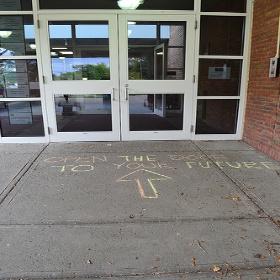 OPEN THE DOOR
TO YOUR FUTURE